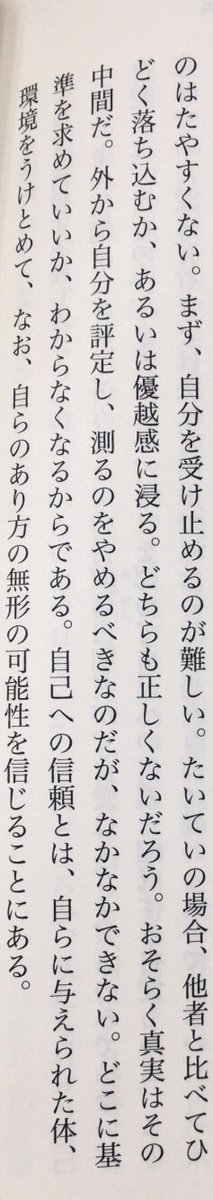 のはたやすくない。まず、自分を受け止めるのが難しい。たいていの場合、他者と比べてひ
どく落ち込むか、あるいは優越感に浸る。どちらも正しくないだろう。おそらく真実はその
中間だ。外から自分を評定し、測るのをやめるべきなのだが、なかなかできない。どこに基
準を求めていいか、わからなくなるからである。自己への信頼とは、自らに与えられた体、
環境をうけとめて、なお、自らのあり方の無形の可能性を信じることにある。